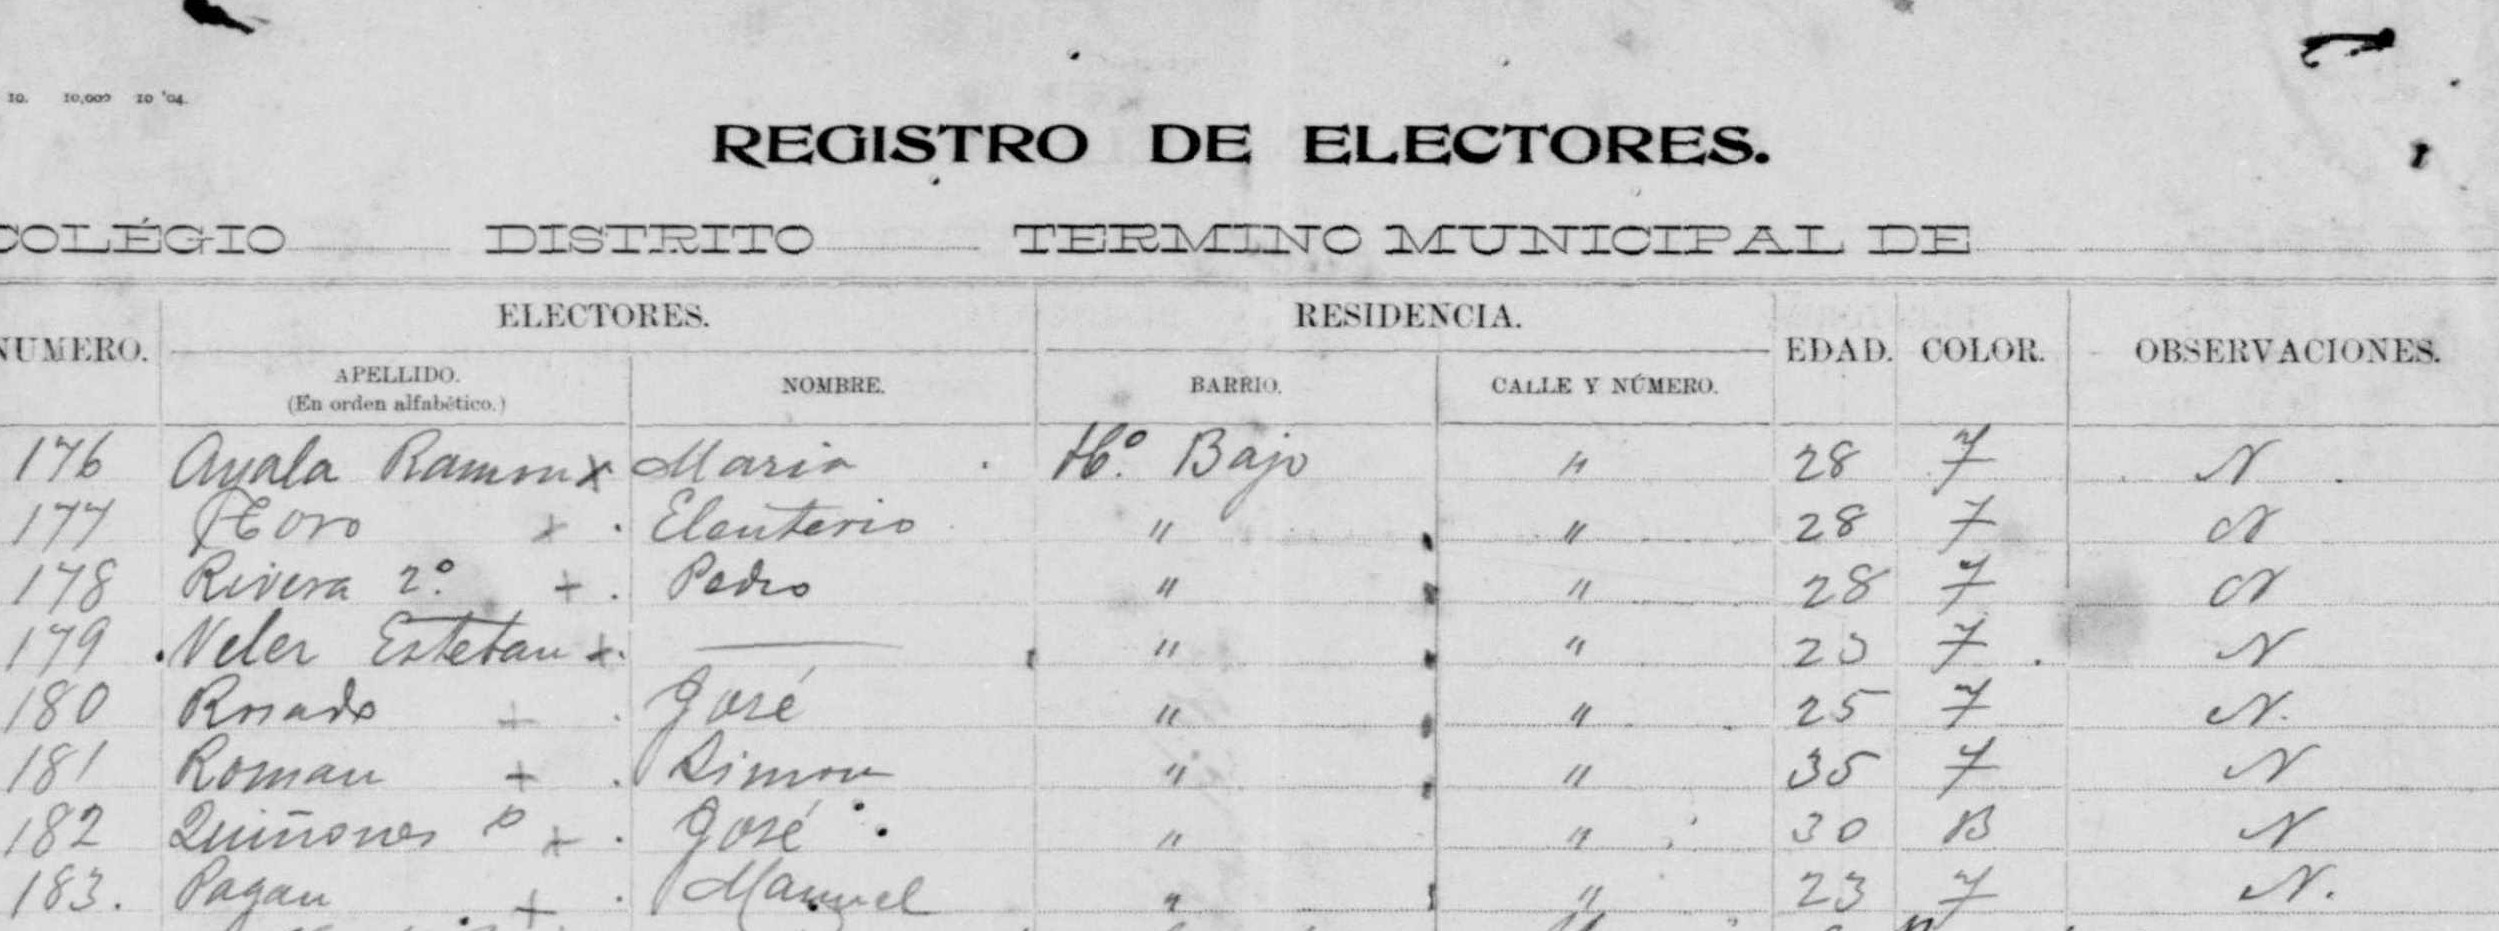 10. 10,000 10 '04.
REGISTRO DE ELECTORES.
COLÉGIO DISTRITO TERMINO MUNICIPAL DE
NUMERO. ELECTORES. RESIDENCIA. EDAD. COLOR. OBSERVACIONES.
APELLIDO. (En orden alfabético.) NOMBRE. BARRIO. CALLE Y NÚMERO.
176 Ayala Ramon x Maria Hº. Bajo " 28 7 N
177 Toro x Eleuterio " " 28 7 N
178 Rivera 2º. + Pedro " " 28 7 N
179 Veler Esteban + — " " 7 N
180 Rosado + José " " 25 7 N.
181 Roman + Simon " " 35 7 N
182 Quiñones + José " " 30 B N
183. Pagan + Manuel " " 23 7 N.